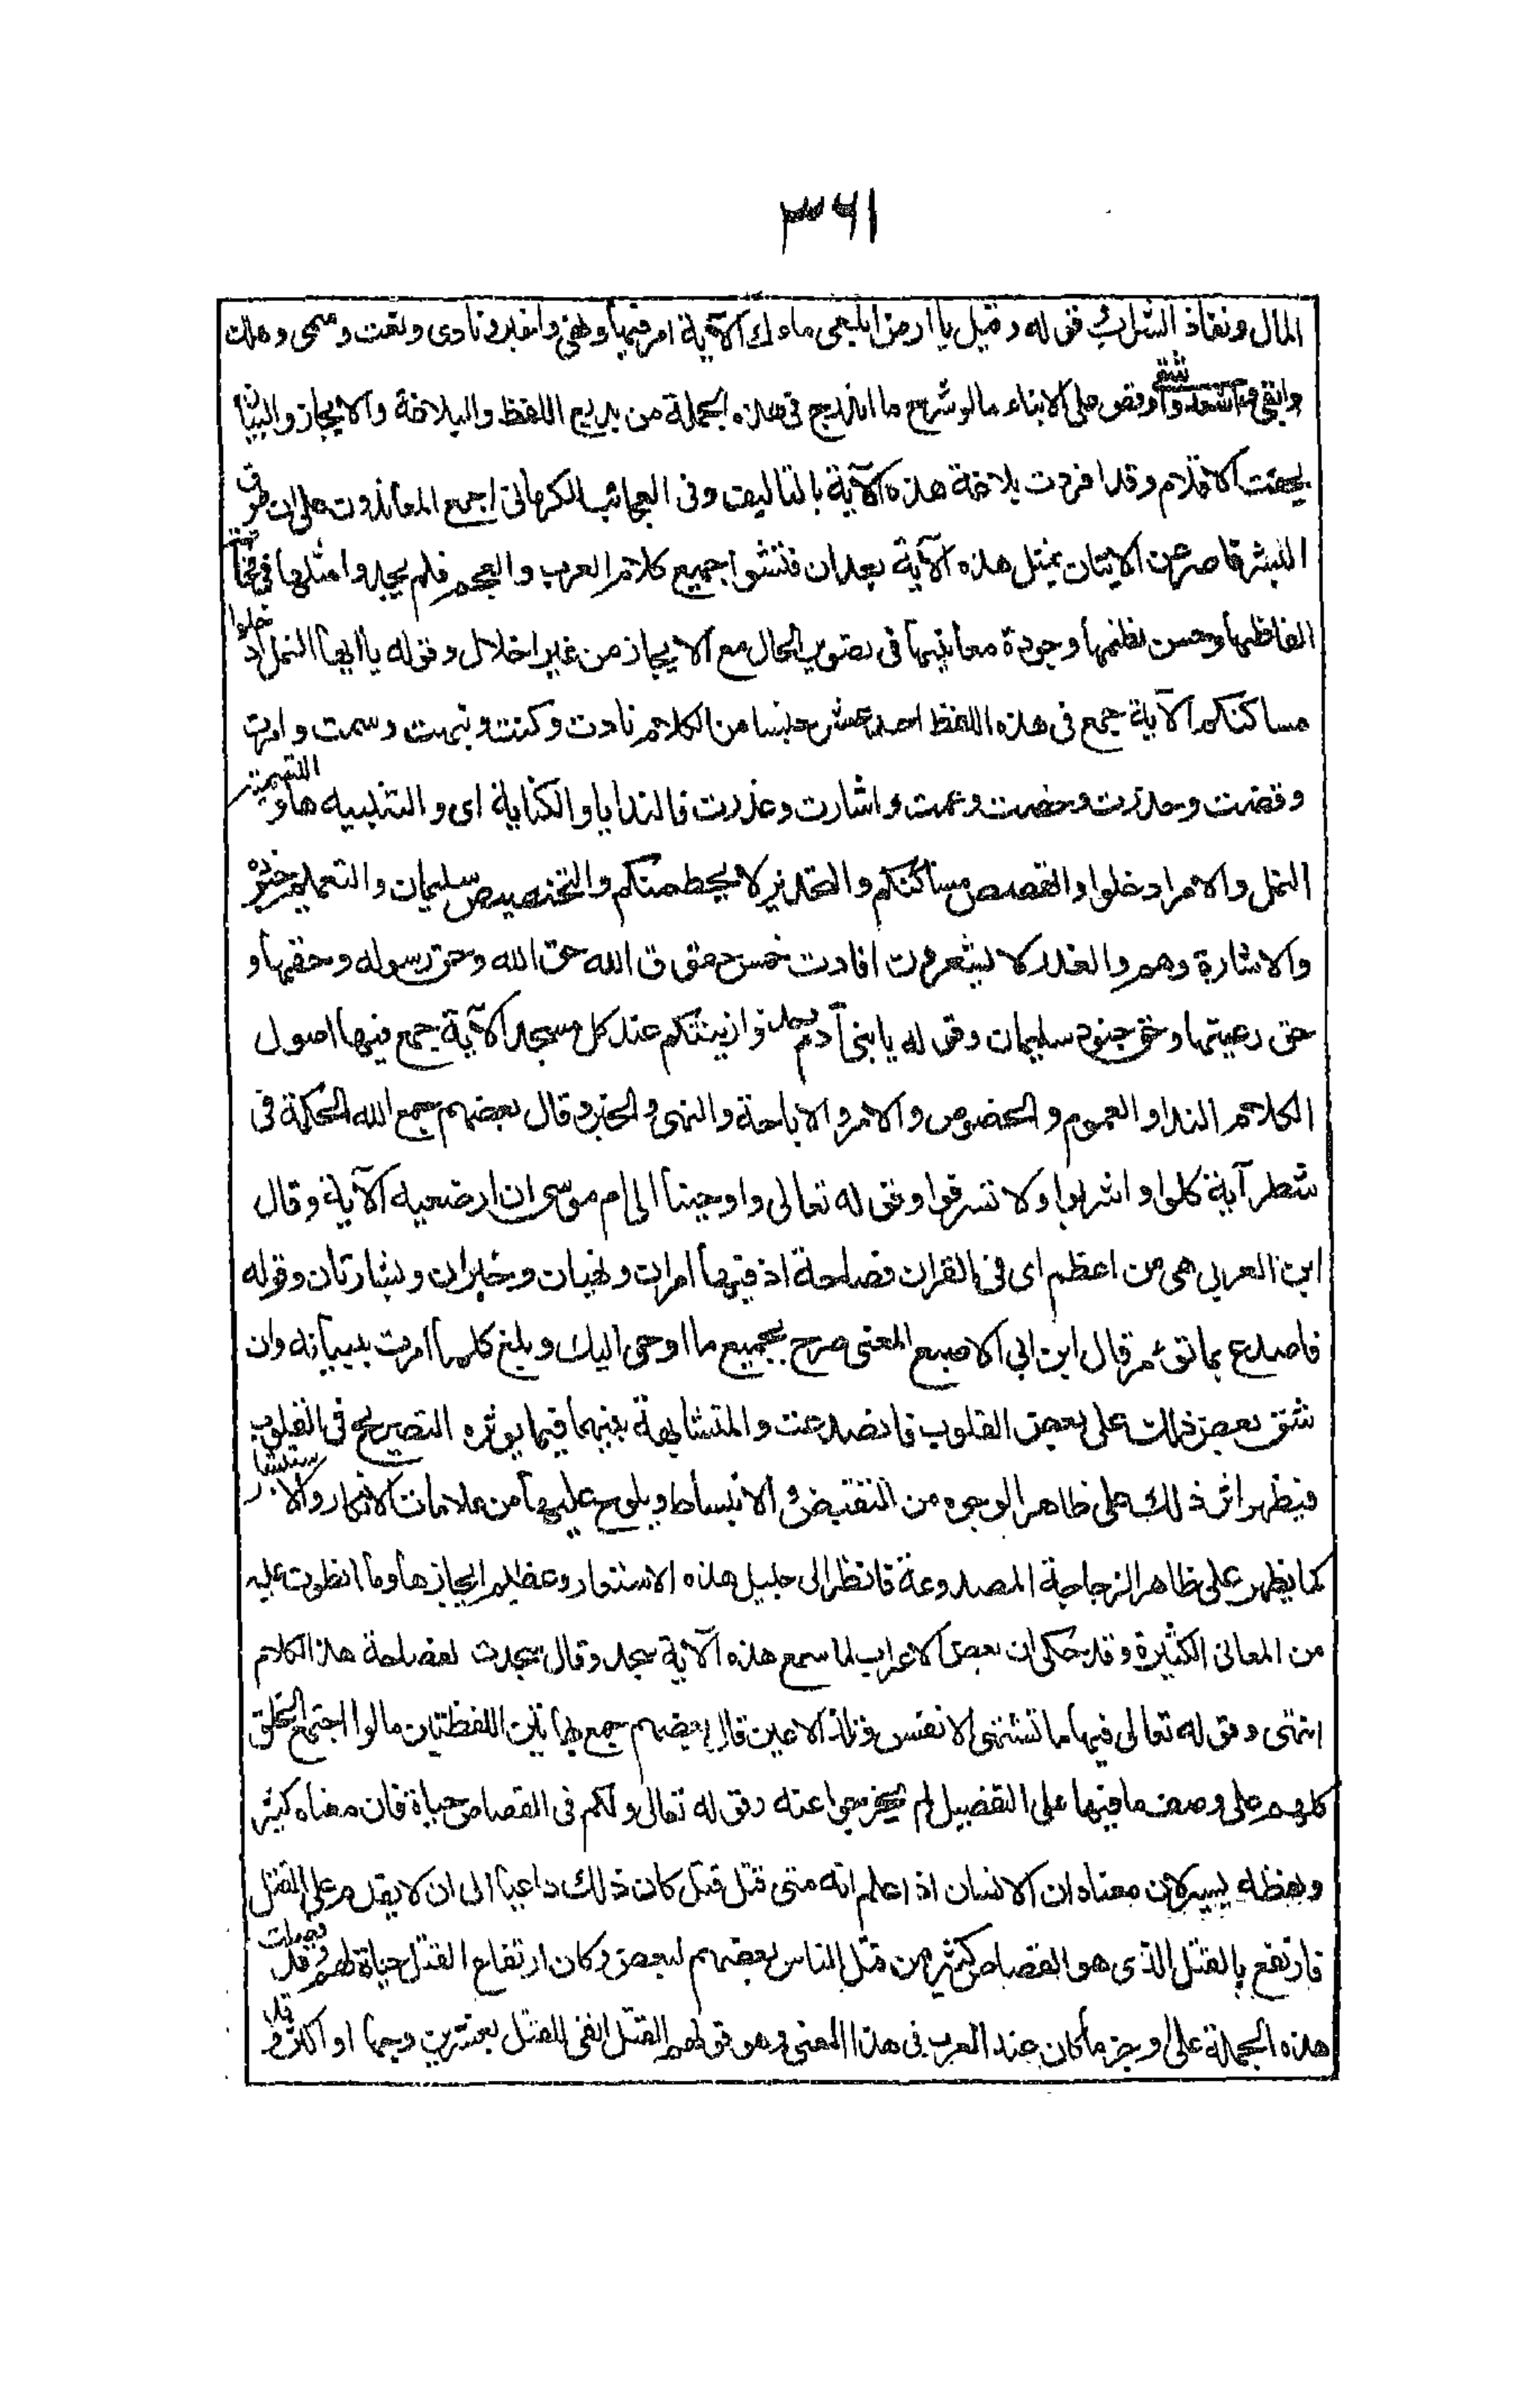 ٣٦١
المال ونفاذ الشراب وقوله وقيل يا ارض ابلعى ماءك الآية امر فيها ونهى واخبر ونادى ونعت وسمى وهلك
وابقى واسعد واشقى وقص على الانباء مالو شرح ما اندرج فى هذه الجملة من بديع اللفظ والبلاغة والايجاز والبيان
لجفت الاقلام وقد افردت بلاغة هذه الآية بالتاليف وفى العجائب للكرمانى اجمع المعاندون على ان طوق
البشر قاصر عن الاتيان بمثل هذه الآية بعد ان فتشوا جميع كلام العرب والعجم فلم يجدوا مثلها فى فخامة
الفاظها وحسن نظمها وجودة معانيها فى تصوير الحال مع الايجاز من غير اخلال وقوله يا ايها النمل ادخلوا
مساكنكم الآية جمع فى هذه اللفظ احد عشر جنسا من الكلام نادت وكنت ونبهت وسمت وامرت
وقصت وحذرت وخصت وعمت واشارت وعذرت فالندا يا والكناية اى والتنبيه ها والتسمية
النمل والامر ادخلوا والقصص مساكنكم والتحذير لا يحطمنكم والتخصيص سليمان والتعميم جنوده
والاشارة وهم والعذر لا يشعرون افادت خمس حقوق الله حق الله وحق رسوله وحقها و
حق رعيتها وحق جنود سليمان وقوله يا بنى آدم خذوا زينتكم عند كل مسجد الآية جمع فيها اصول
الكلام الندا والعموم والخصوص والامر والاباحة والنهى والخبر وقال بعضهم جمع الله الحكمة فى
شطر آية كلوا واشربوا ولا تسرفوا وقوله تعالى واوحينا الى ام موسى ان ارضعيه الآية وقال
ابن العربى هى من اعظم اى فى القران فصاحة اذ فيها امران ونهيان وخبران وبشارتان وقوله
فاصدع بما تؤمر قال ابن ابى الاصبع المعنى صرح بجميع ما اوحى اليك وبلغ كلما امرت ببيانه وان
شق بعض ذلك على بعض القلوب فانصدعت والمتشابهة بينهما فيما يوثره التصريح فى القلوب
فيظهر اثر ذلك على ظاهر الوجوه من التقبض والانبساط ويلوح عليها من علامات الانكار والاستبشار
كما يظهر على ظاهر الزجاجة المصدوعة فانظر الى جليل هذه الاستعار وعظيم ايجازها وما انطوت عليه
من المعانى الكثيرة وقد حكى ان بعض الاعراب لما سمع هذه الآية سجد وقال سجدت لفصاحة هذا الكلام
انتهى وقوله تعالى فيها ما تشتهى الانفس وتلذ الاعين قال بعضهم جمع بهاتين اللفظتين مالوا اجتمع الخلق
كلهم على وصف ما فيها على التفصيل لم يخرجوا عنه وقوله تعالى ولكم فى القصاص حياة فان معناه كثير
ولفظه يسير لان معناه ان الانسان اذا علم انه متى قتل قتل كان ذلك داعيا الى ان لا يقدم على القتل
فارتفع بالقتل الذى هو القصاص كثير من قتل الناس بعضهم لبعض وكان ارتفاع القتل حياة لهم وقد فضلت
هذه الجملة على اوجز ما كان عند العرب فى هذا المعنى وهو قولهم القتل انفى للقتل بعشرين وجها او اكثر وقد